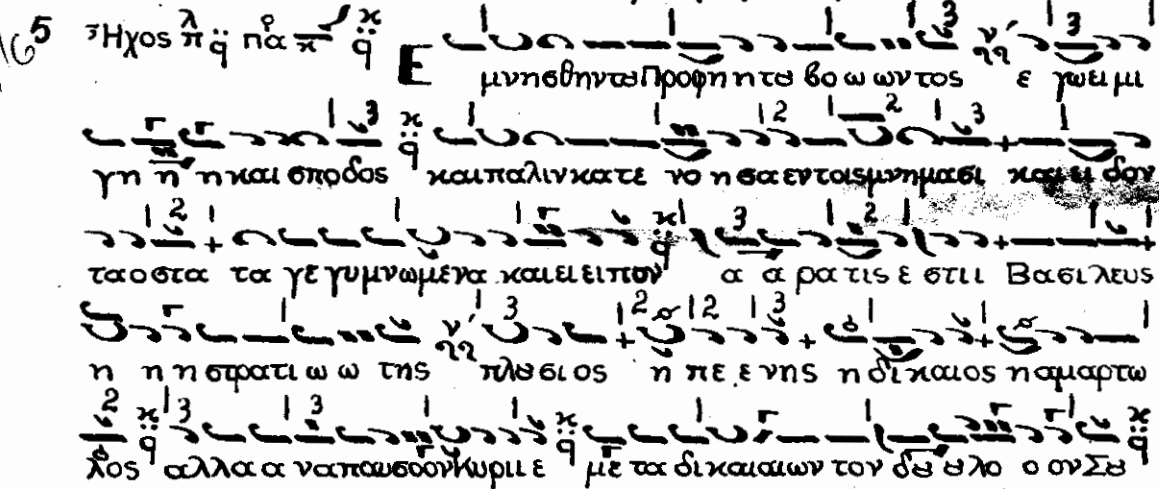 165 Ἦχος λ π q πα κ q Ε μνησθηντȣΠροφηητȣ βοωωντος ε γωειμι
γη η ηκαι σποδος και παλιν κατε νο ησαεντοιςμνημασι καιειδον
ταοστα τα γεγυμνωμενα καιειειπον α α ρα τις ε στιι Βασιλευς
η η η στρατι ω ω της πλȣσιος η πε ε νης η δικαιος η αμαρτω
λος αλλα α ναπαυσοονΚυριιε με τα δικαιαιων τον δȣ ȣλο ο ονΣȣ